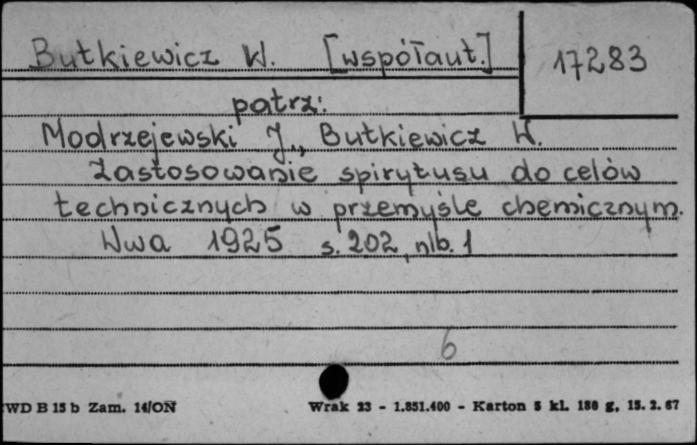 Butkiewicz W. [współaut.] 17283
patrz:
Modrzejewski J., Butkiewicz W.
Zastosowanie spirytusu do celów
technicznych w przemyśle chemicznym.
Wwa 1925 s. 202, nlb. 1
6
WD B 15 b Zam. 14/ON Wrak 23 - 1.851.400 - Karton 5 kl. 180 g, 15. 2. 67